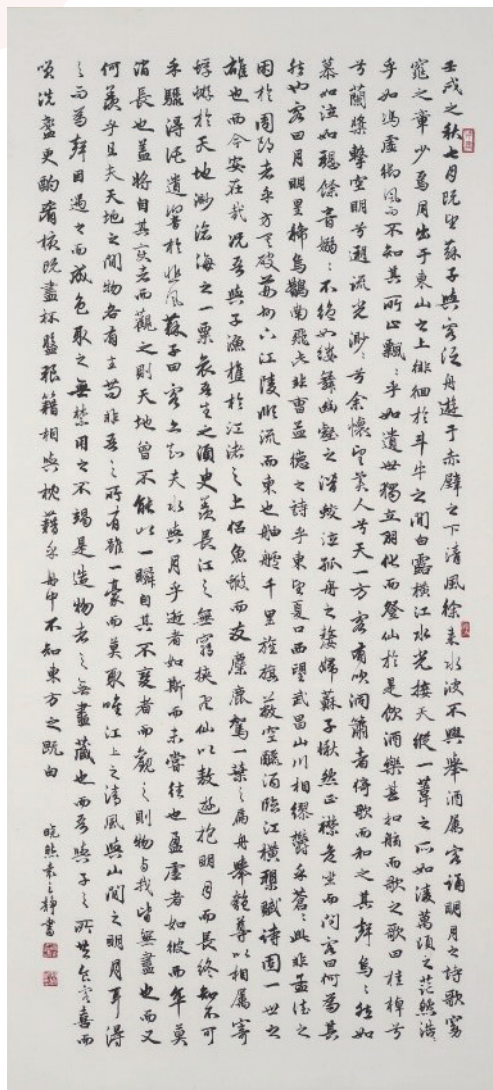 壬戌之秋七月既望蘇子與客泛舟遊于赤壁之下清風徐來水波不興舉酒屬客誦明月之詩歌窈
窕之章少焉月出于東山之上徘徊於斗牛之間白露橫江水光接天縱一葦之所如凌萬頃之茫然浩
乎如馮虛御風而不知其所止飄:乎如遺世獨立羽化而登仙於是飲酒樂甚扣舷而歌之歌曰桂棹兮
兮蘭槳擊空明兮遡流光渺:兮余懷望美人兮天一方客有吹洞簫者倚歌而和之其聲烏:然如
慕如泣如訴餘音嫋:不絕如縷舞幽壑之潛蛟泣孤舟之嫠婦蘇子愀然正襟危坐而問客曰何為其
然也客曰月明星稀烏鵲南飛此非曹孟德之詩乎東望夏口西望武昌山川相繆鬱乎蒼:此非孟德之
困於周郎者乎方其破荊州下江陵順流而東也舳艫千里旌旗蔽空釃酒臨江橫槊賦詩固一世之
雄也而今安在哉況吾與子漁樵於江渚之上侶魚蝦而友麋鹿駕一葉之扁舟舉匏尊以相屬寄
蜉蝣於天地渺滄海之一粟哀吾生之須臾羨長江之無窮挾飛仙以遨遊抱明月而長終知不可
乎驟得託遺響於悲風蘇子曰客亦知夫水與月乎逝者如斯而未嘗往也盈虛者如彼而卒莫
消長也蓋將自其變者而觀之則天地曾不能以一瞬自其不變者而觀之則物与我皆無盡也而又
何羨乎且夫天地之間物各有主苟非吾之所有雖一毫而莫取唯江上之清風與山間之明月耳得
之而為聲目遇之而成色取之無禁用之不竭是造物者之無盡藏也而吾與子之所共食客喜而
笑洗盞更酌肴核既盡杯盤狼籍相與枕藉乎舟中不知東方之既白
袁之靜書